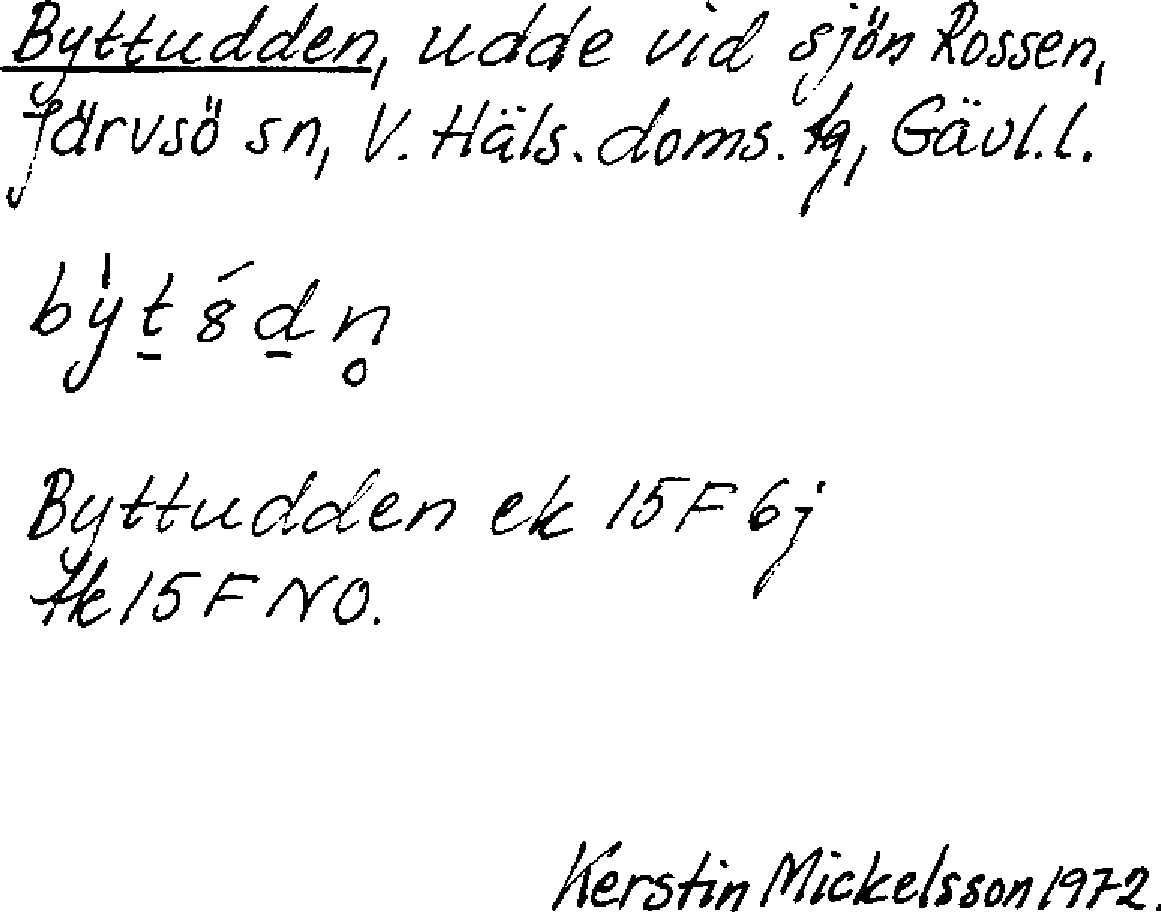 Byttudden, udde vid sjön Rossen,
Järvsö sn, V. Häls. doms. tg, Gävl. l.
bỳt̠ 8́ d̠ n̥
Byttudden ek 15F 6j
tk 15 F NO.
Kerstin Mickelsson 1972.